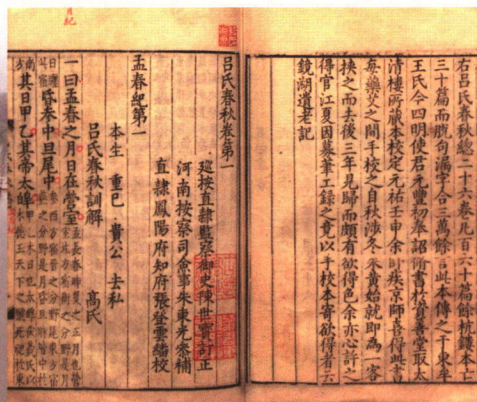 右呂氏春秋總二十六卷凡百六十篇餘杭鏤本亡
三十篇而脫句漏字合三萬餘言此本傳之于東牟
王氏今四明使君元豐初奉詔修書於資善堂取太
清樓所藏本校定元祐壬申余臥疾京師喜得此書
每藥艾之間手校之自秋涉冬朱黃始就即為一客
挾之而去後三年見歸而頗有欲得色余亦心許之
得官江夏因募筆工錄之竟以手校本寄欲得者云
鏡湖遺老記
呂氏春秋卷第一
巡按直隸監察御史陳世寶訂正
河南按察司僉事朱東光叅補
直隸鳳陽府知府張登雲繙校
孟春紀第一
本生 重巳 貴公 去私
呂氏春秋訓解 高氏
一曰孟春之月日在營室
昏參中旦尾中
其日甲乙其帝太皞